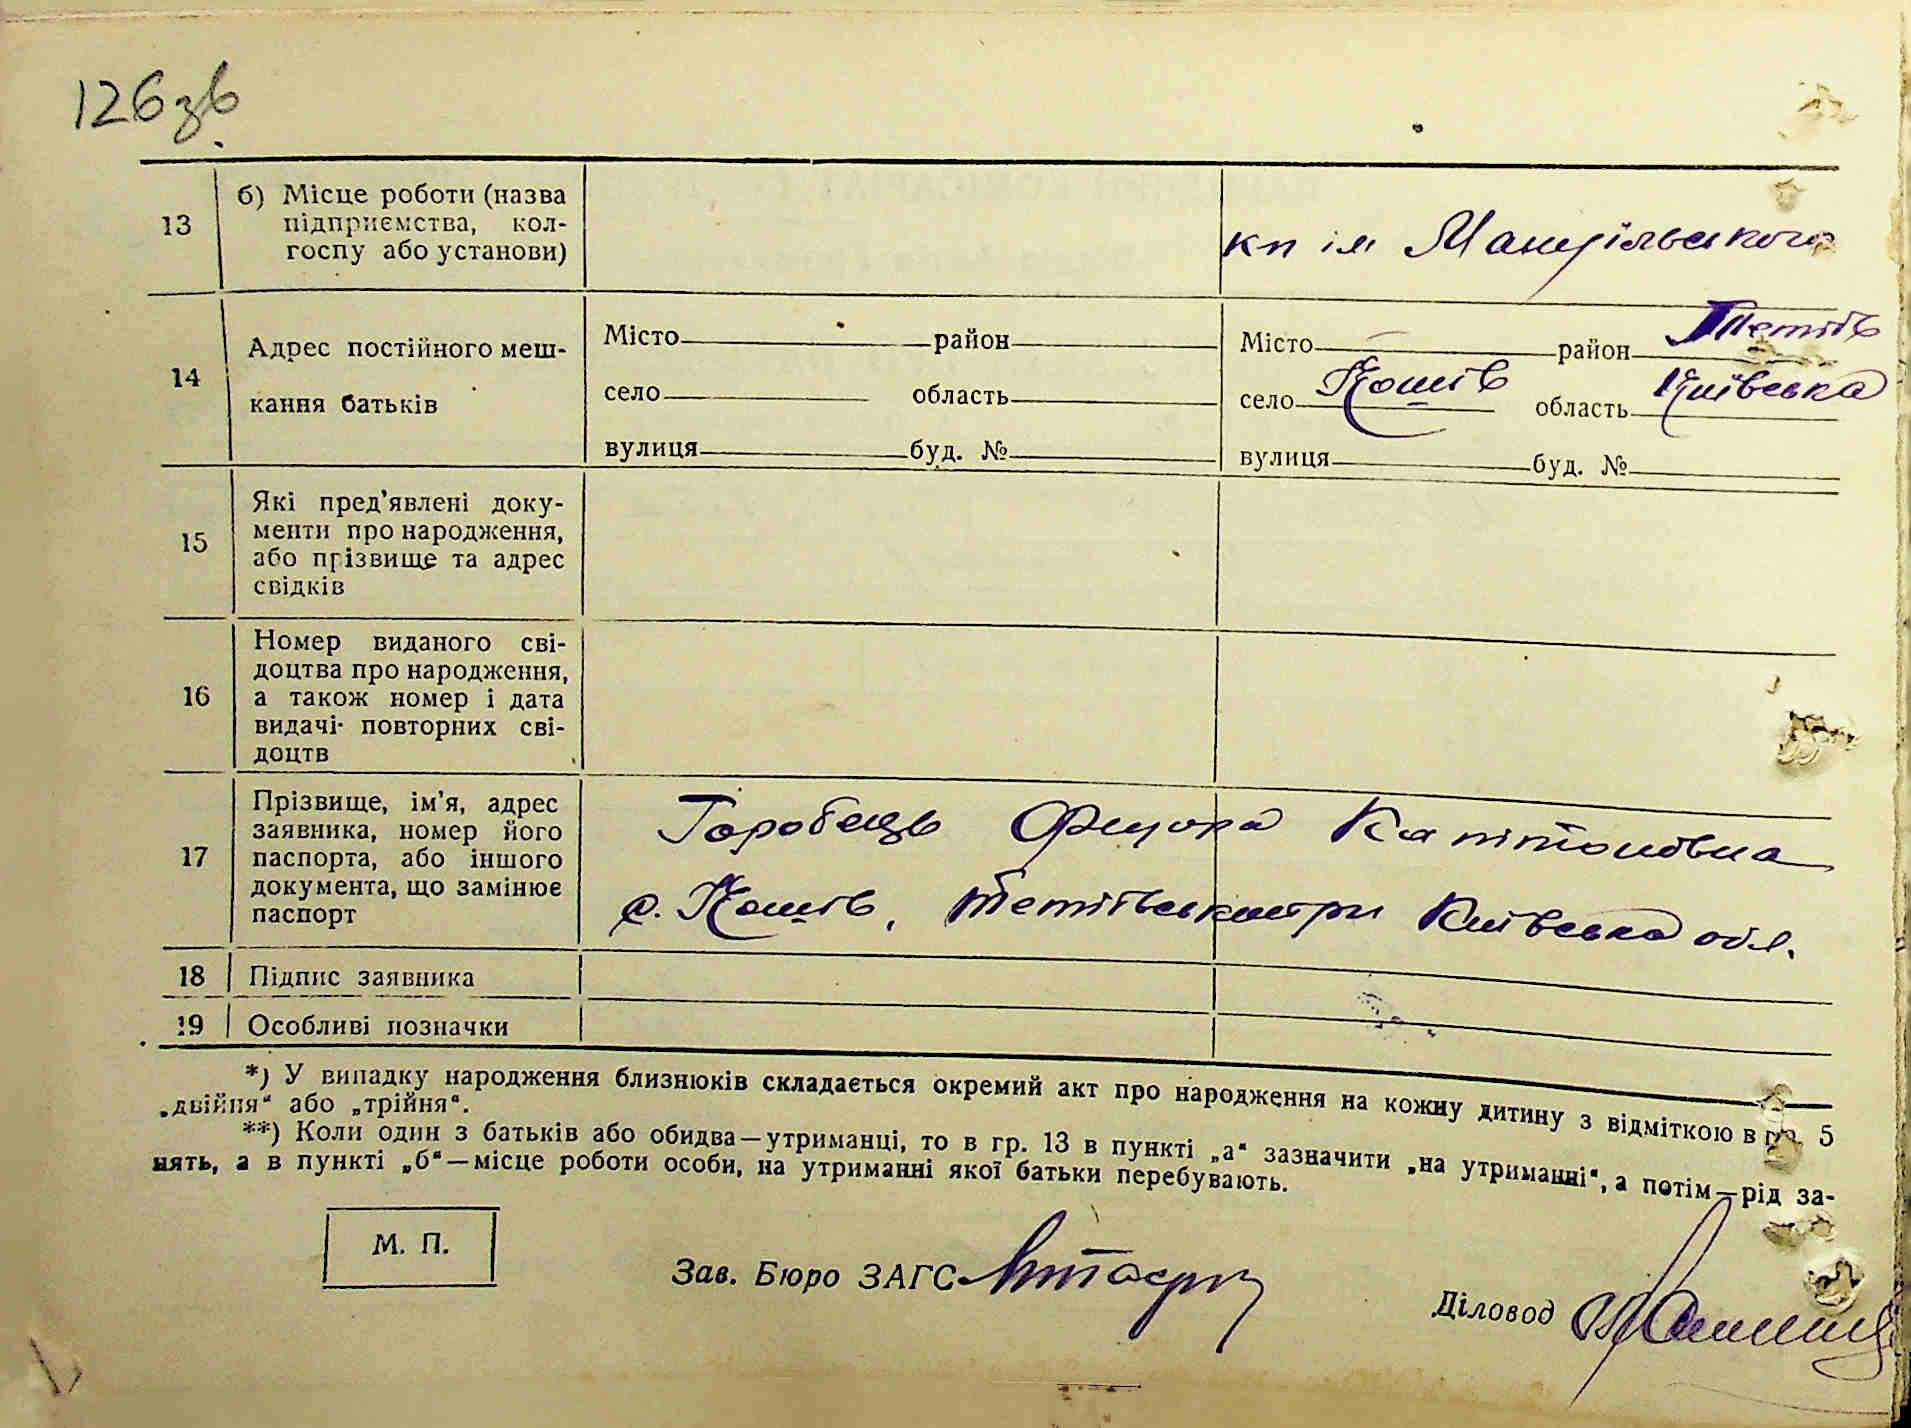 126 зв
13 б) Місце роботи (назва
підприємства, кол-
госпу або установи)
кп ім Мануїльського
14 Адрес постійного меш-
кання батьків
Місто район
село область
вулиця буд. №
Місто район Тетіїв
село Кошів область Київська
вулиця буд. №
15 Які пред'явлені доку-
менти про народження,
або прізвище та адрес
свідків
16 Номер виданого сві-
доцтва про народження,
а також номер і дата
видачі повторних сві-
доцтв
17 Прізвище, ім'я, адрес
заявника, номер його
паспорта, або іншого
документа, що замінює
паспорт
Горобець Капітонівна
с. Кошів, Київська обл.
18 Підпис заявника
19 Особливі позначки
*) У випадку народження близнюків складається окремий акт про народження на кожну дитину з відміткою в гр. 5
„двійня“ або „трійня“.
**) Коли один з батьків або обидва—утриманці, то в гр. 13 в пункті „а“ зазначити „на утриманні“, а потім—рід за-
нять, а в пункті „б“—місце роботи особи, на утриманні якої батьки перебувають.
М. П.
Зав. Бюро ЗАГС
Діловод